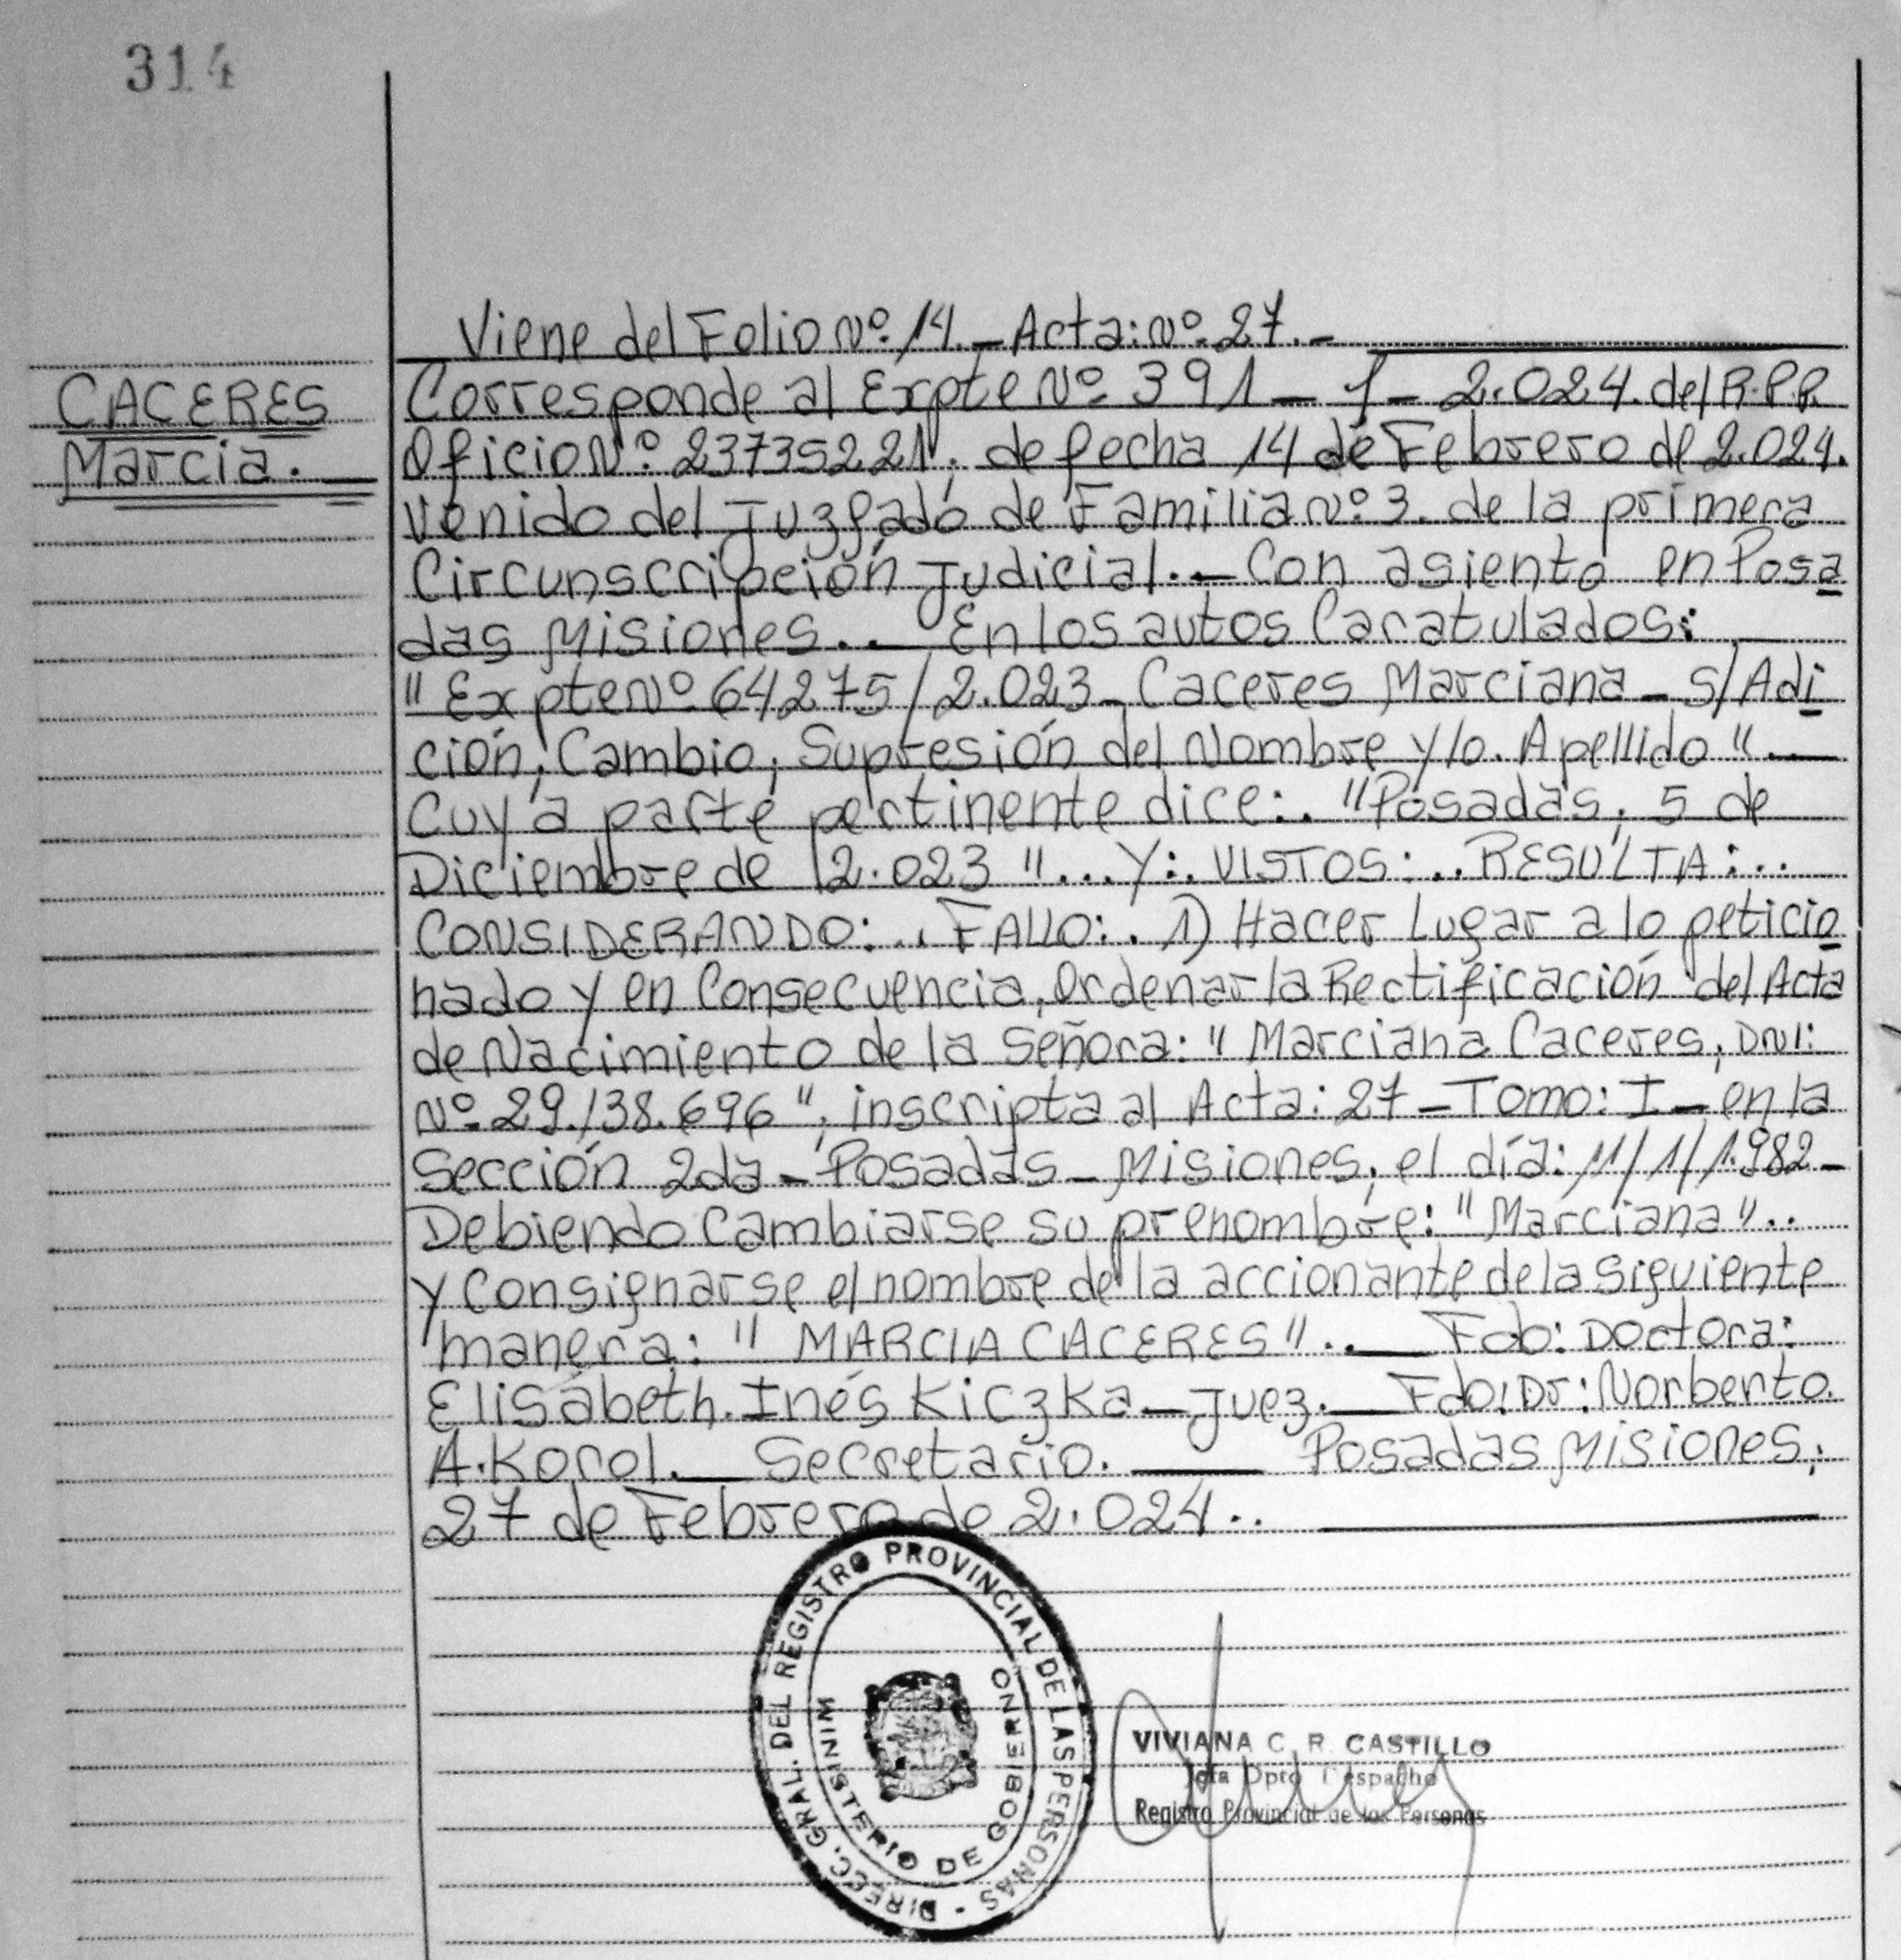 314
Viene del Folio Nº 14.- Acta: Nº 27.-
CACERES
Marcia.
Corresponde al Expte Nº 391 - J - 2.024. del R.P.P.
Oficio Nº 23735221, de fecha 14 de Febrero de 2.024.
Venido del Juzgado de Familia Nº 3. de la primera
Circunscripción Judicial.- Con asiento en Posa
das Misiones.. En los autos Caratulados:
"Expte Nº 64275/2.023- Caceres Marciana - S/Adi
ción, Cambio, Supresión del Nombre y/o. Apellido".-
Cuya parte pertinente dice:. "Posadas, 5 de
Diciembre de 2.023"... Y:. VISTOS:.. RESULTA:..
CONSIDERANDO:.. FALLO:. 1) Hacer Lugar a lo peticio
nado y en Consecuencia, Ordenar la Rectificación del Acta
de Nacimiento de la Señora: "Marciana Caceres, DNI:
Nº 29.138.696", inscripta al Acta: 27 - Tomo: I - en la
Sección 2da - Posadas - Misiones, el día: 11/1/1.982 -
Debiendo Cambiarse su prenombre: "Marciana"..
y Consignarse el nombre de la accionante de la siguiente
manera: "MARCIA CACERES".. Fdo: Doctora:
Elisabeth. Inés Kiczka - Juez. Fdo: Dr: Norberto.
A. Korol. Secretario. Posadas Misiones,
27 de Febrero de 2.024..
DIREC. GRAL. DEL REGISTRO PROVINCIAL DE LAS PERSONAS -
MINISTERIO DE GOBIERNO
VIVIANA C. R. CASTILLO
Jefa Dpto Despacho
Registro Provincial de las Personas